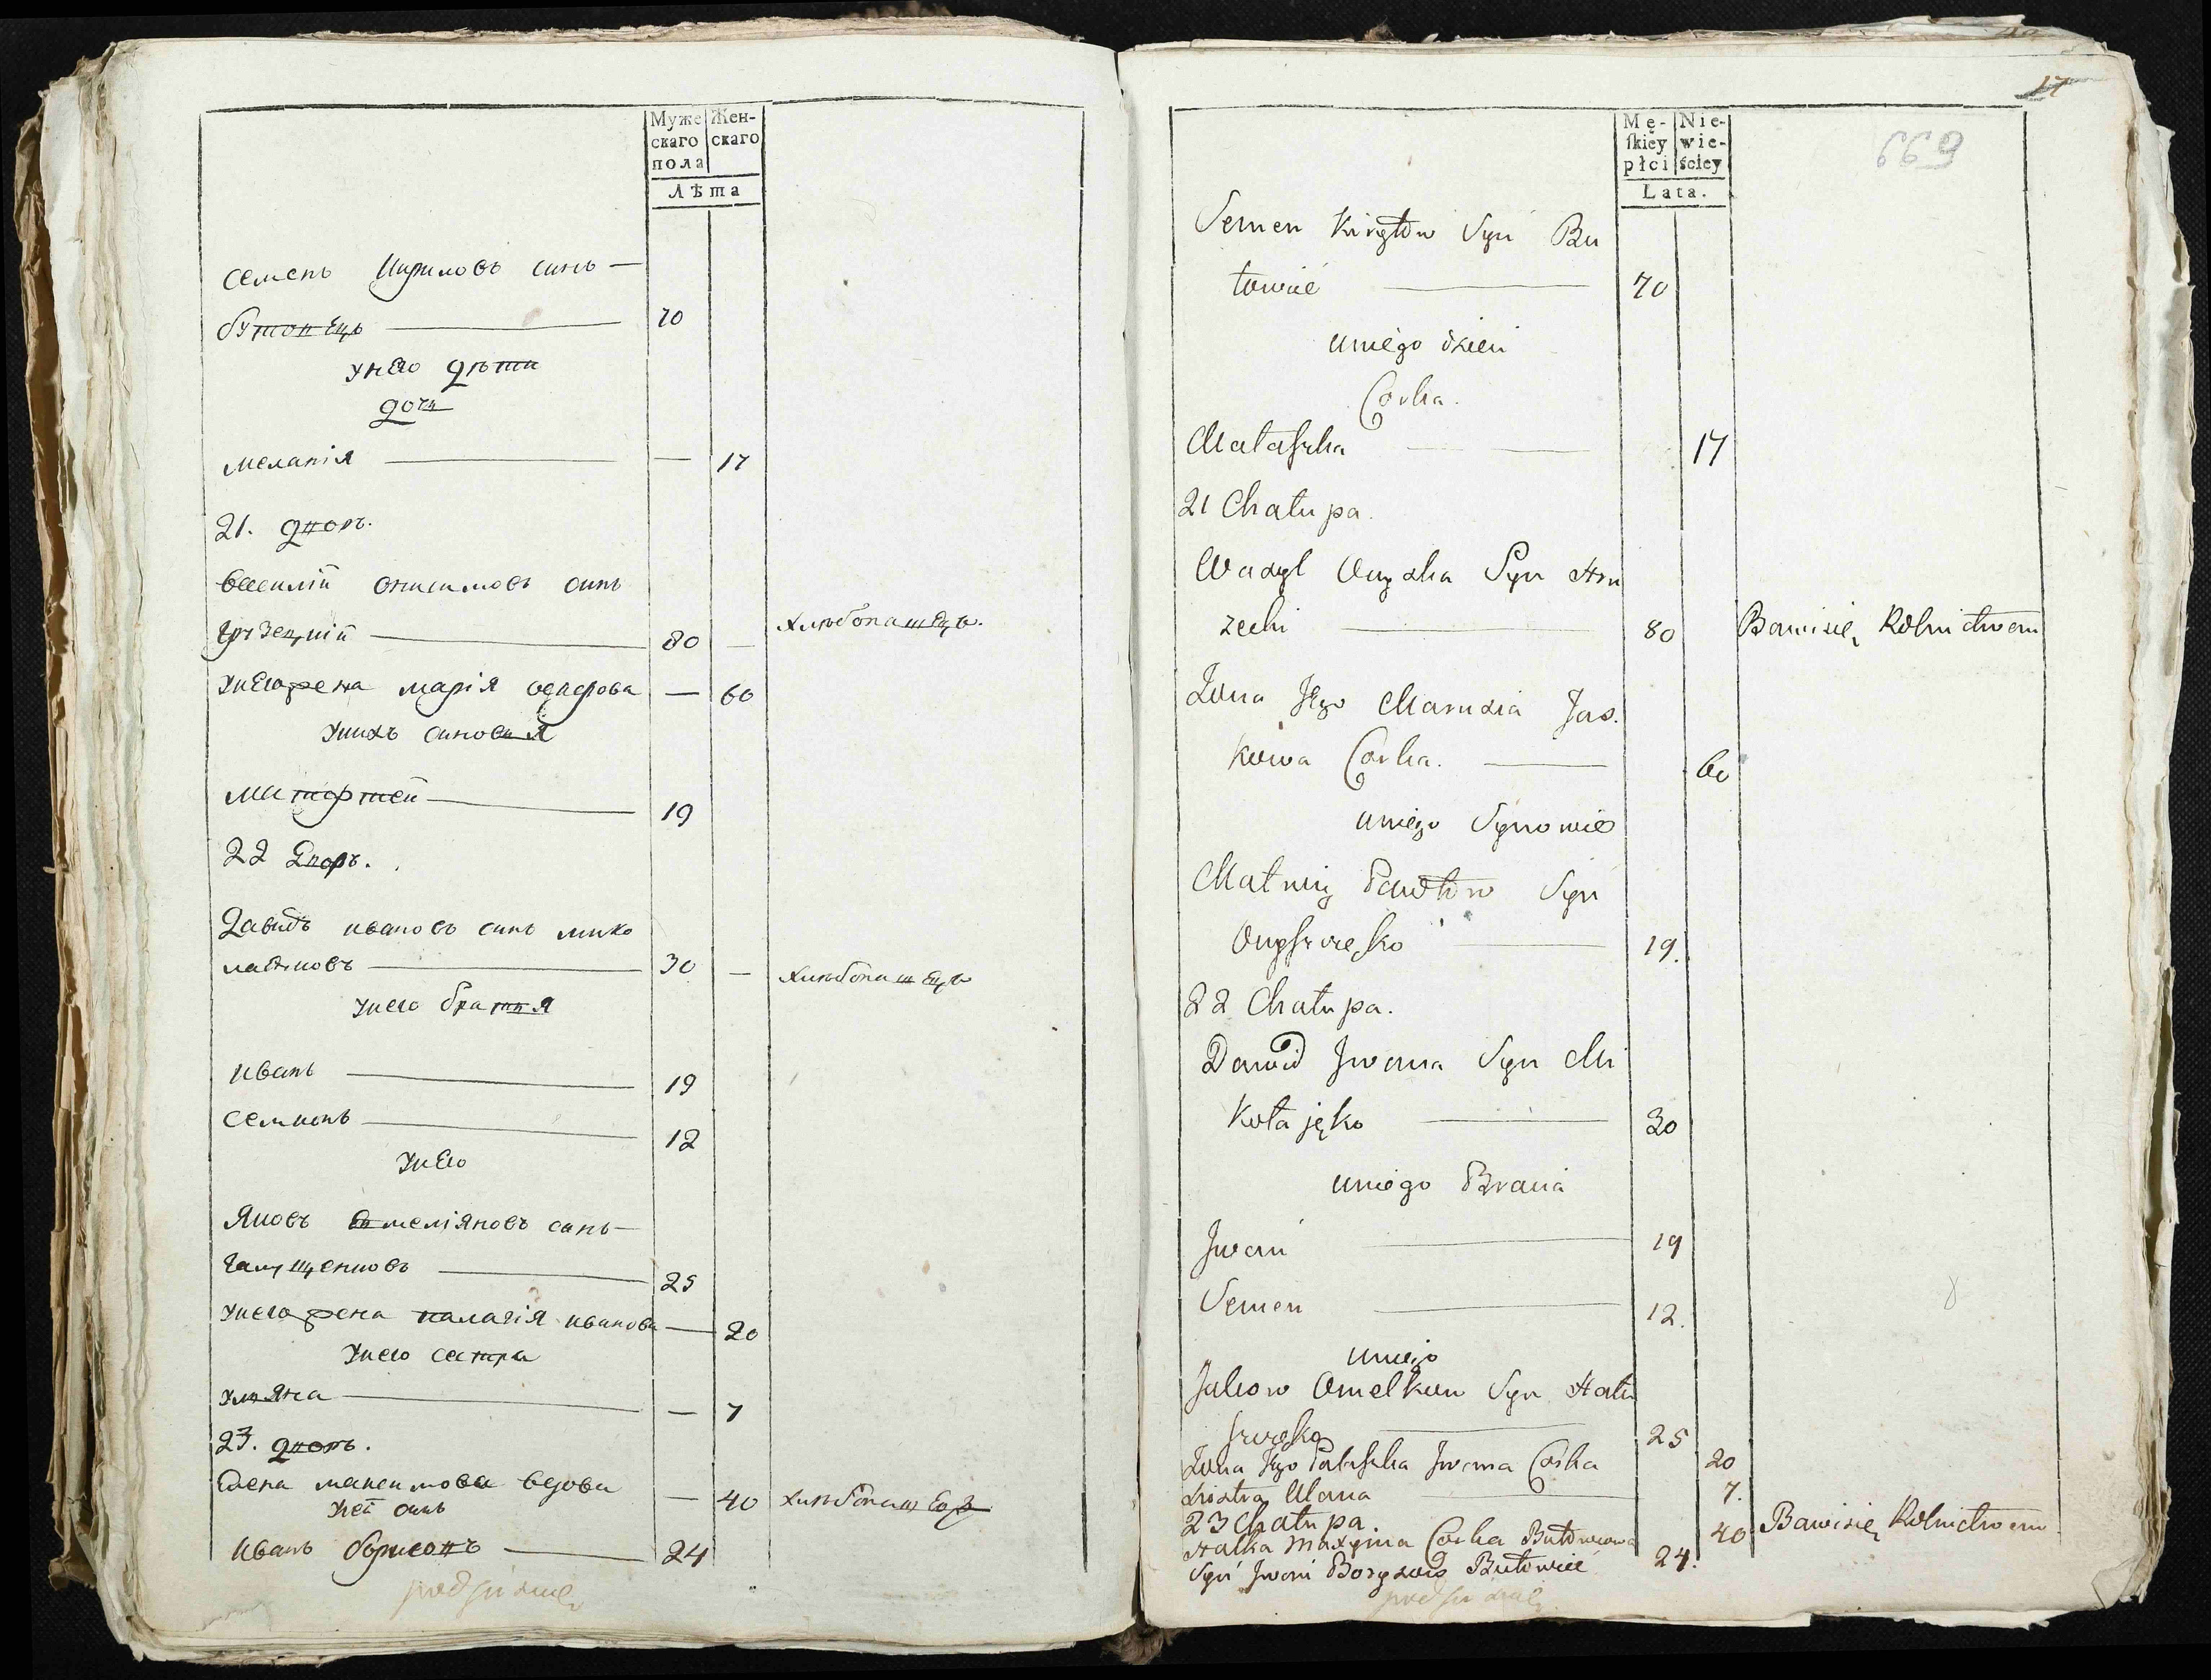 Муже Жен-
скаго скаго
пола
Лѣта
семенъ Кириловъ синъ —
бутовецъ — 70
унего дѣти
дочь
меланія — — 17
21. дворъ.
василій онисимовъ синъ
грузецкій — 80 — хлѣбопашецъ.
унего жена марія — 60
унихъ синовья
матфтей — 19
22 дворъ.
Давидъ ивановъ синъ мико
лаенковъ — 30 — хлѣбопашецъ
унего братья
иванъ — 19
семионъ — 12
унего
яковъ емеліяновъ синъ —
галущенковъ — 25
унего жена палагія иванова — 20
унего сестра
ульяна — — 7
23. дворъ.
Елена максимова вдова — 40 хлѣбопашецъ
уней синъ
иванъ борисовъ — 24
17
669
Mę- Nie-
ſkiey wie-
płci ściey
Lata.
Semen Kiryłów Syn Bu
towiec — 70
uniego dzieci
Corka.
Małaſzka — 17
21 Chałupa.
Wasyl Onyska Syn Hru
zecki — 80 Bawisię Rolnictwem
Zona Jego Marusia Jas.
kowa Corka. — 60
uniego Synowie
Matwiy Pawłów Syn
Onyſzczęko — 19.
22 Chałupa.
Dawid Iwana Syn Mi
kołajęko — 30
uniego Bracia
Jwan — 19
Semen — 12.
uniego
Jakow Omelkow Syn Hału
ſzczęko — 25
Zona Jego Pałaſzka Jwana Corka 20
Siostra Ulana — 7.
23 Chałupa.
Hałka Maxyma Corka Butowcowa 40 Bawisię Rolnictwem
Syn Jwan Borysow Butowiec 24.